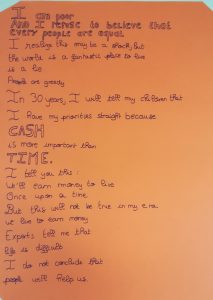 I am poor
And I refuse to believe that
every people are equal
I realize this may be a shock, but
the world is a fantastic place to live
is a lie
People are greedy
In 30 years, I will tell my children that
I have my priorities straight because
CASH
is more important than
TIME.
I tell you this:
We'll earn money to live
Once upon a time
But this will not be true in my era
We live to earn money
Experts tell me that
life is difficult
I do not conclude that
people will help us.